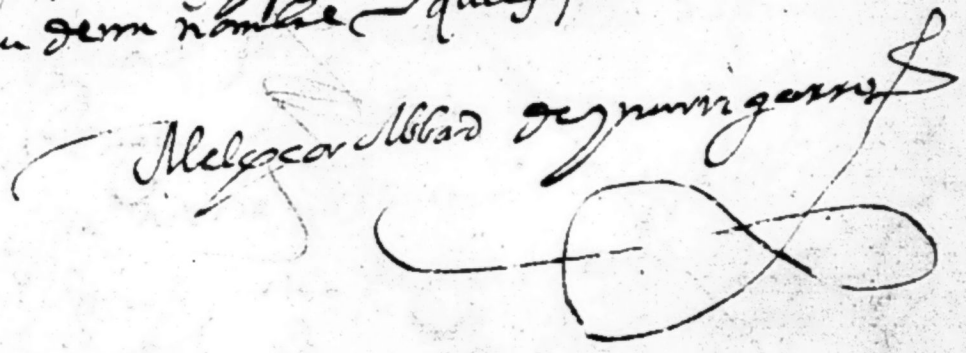 de mi nombre
Melchor Abbad de ynurrigarro